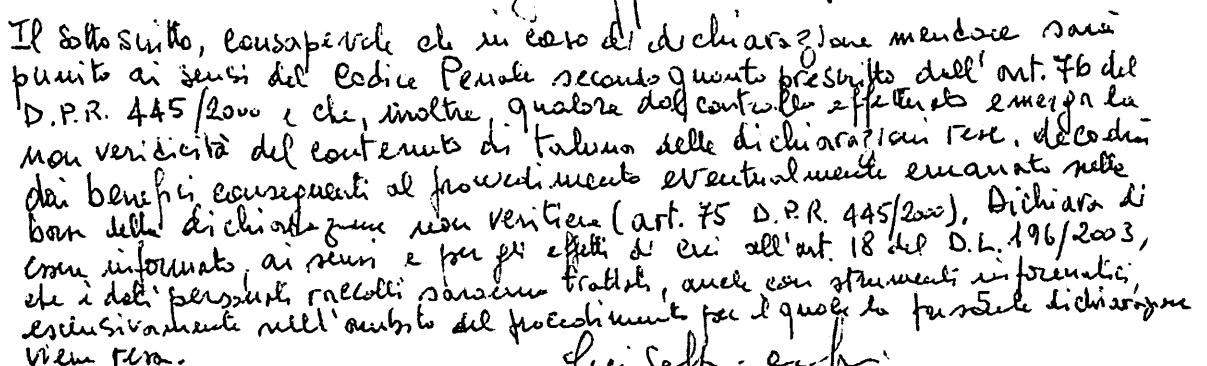 Il sottoscritto, consapevole che in caso di dichiarazione mendace sarà
punito ai sensi del Codice Penale secondo quanto prescritto dall'art. 76 del
D.P.R. 445/2000 e che, inoltre, qualora dal controllo effettuato emerga la
non veridicità del contenuto di taluna delle dichiarazioni rese, decadrà
dai benefici conseguenti al provvedimento eventualmente emanato sulla
base della dichiarazione non veritiera (art. 75 D.P.R. 445/2000). Dichiara di
essere informato, ai sensi e per gli effetti di cui all'art. 18 del D.L. 196/2003,
che i dati personali raccolti saranno trattati, anche con strumenti informatici,
esclusivamente nell'ambito del procedimento per il quale la presente dichiarazione
viene resa.